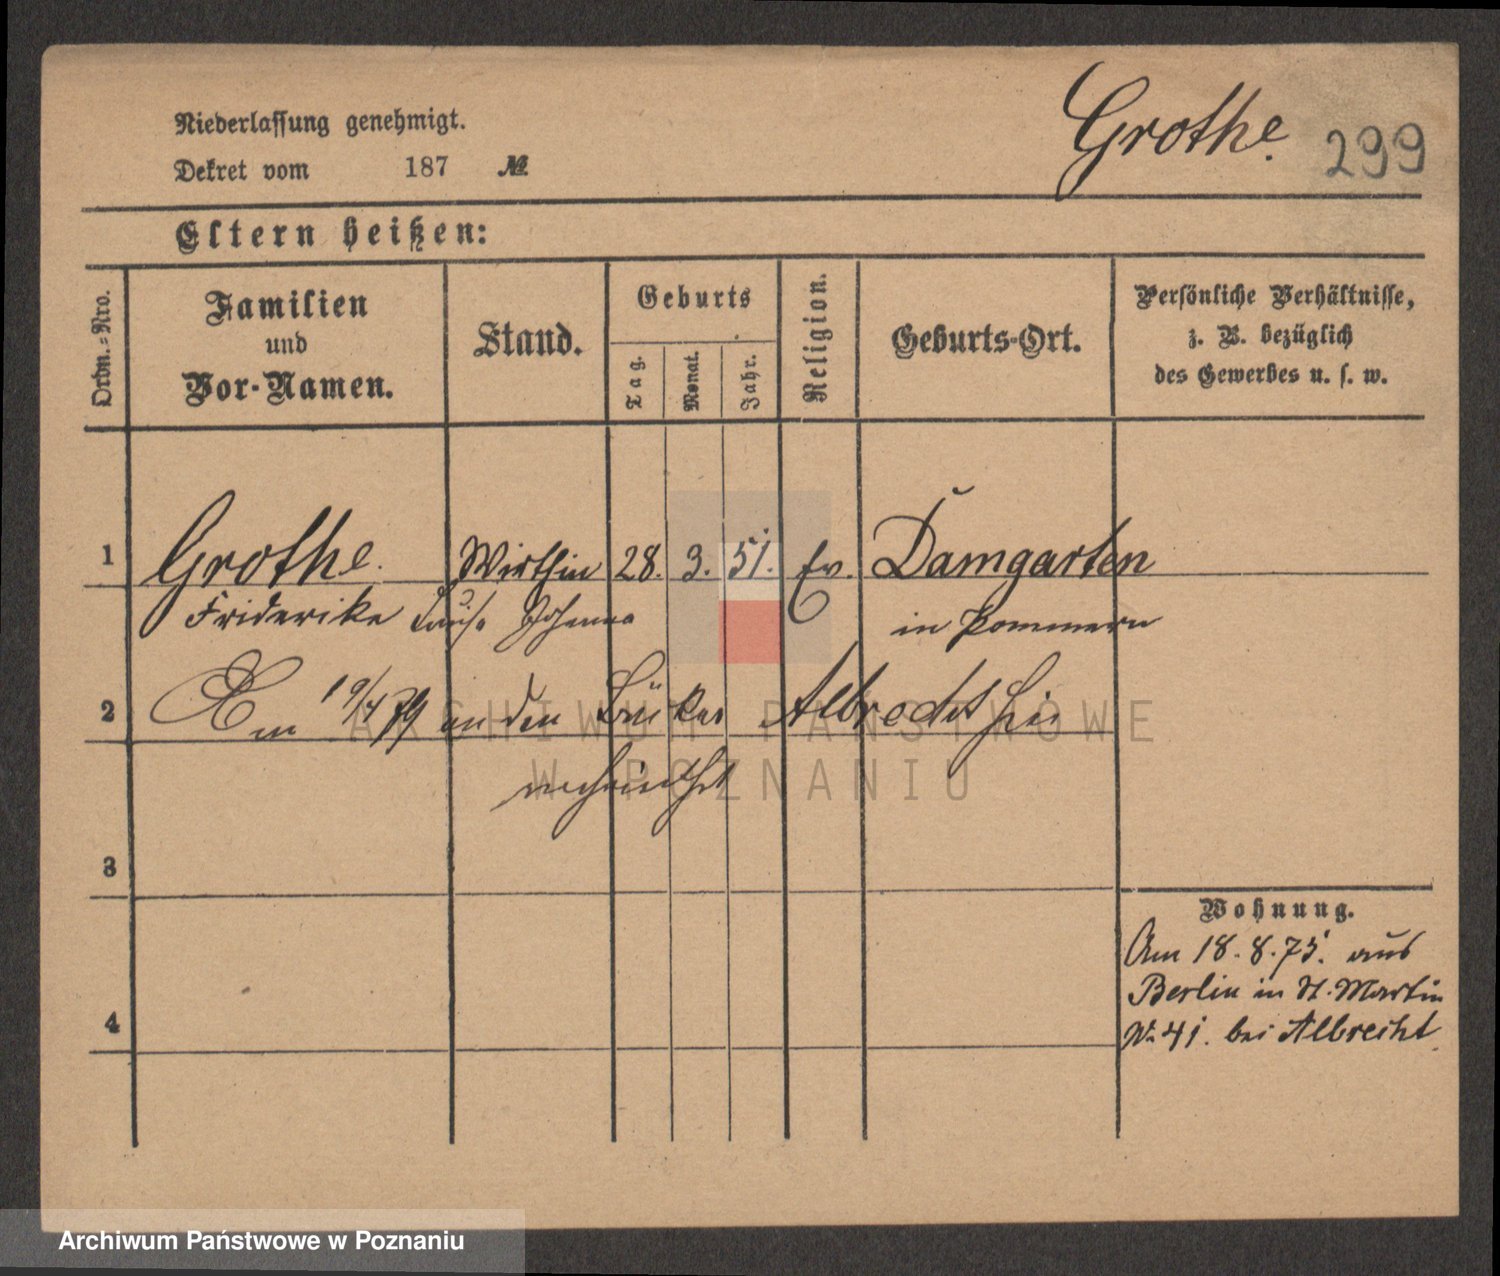 Niederlassung genehmigt.
Dekret vom 187 №
Grothe.
299
Eltern heißen:
Ordn.=Nro.
Familien
und
Vor-Namen.
Stand.
Geburts
Tag.
Monat.
Jahr.
Religion.
Geburts-Ort.
Persönliche Verhältnisse,
z. B. bezüglich
des Gewerbes u. s. w.
1 Grothe. Wirthin 28. 3. 51. Ev. Damgarten
Friderike Louise Johanna in Pommern
2 Am 19/4 79 an den Bäcker Albrecht hier
verheirathet
ARCHIWUM PAŃSTWOWE
W POZNANIU
3
Wohnung.
Am 18. 8. 75. aus
Berlin in St. Martin
№ 41. bei Albrecht.
4
Archiwum Państwowe w Poznaniu